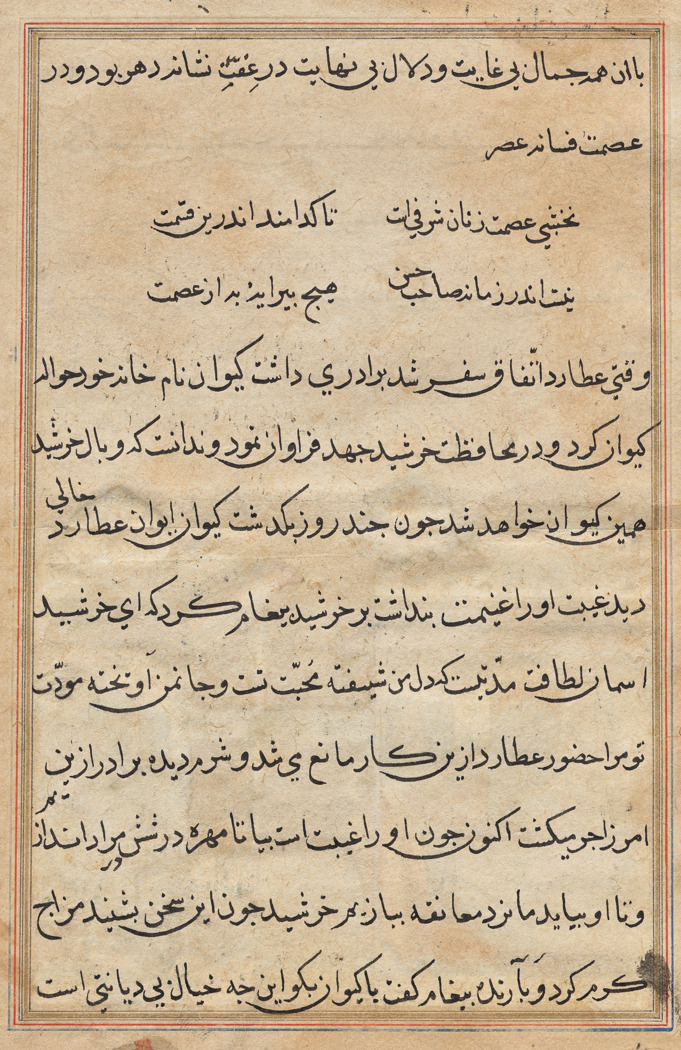 با ان همه جمال بی غایت و دلال بی نهایت در عِفّت نشانه دهر بود و در
عصمت فسانه عصر
نخشبی عصمت زنان شرفی است تا کدامند اندرین قسمت
نیست اندر زمانه صاحب حسن هیچ پیرایهٔ به از عصمت
وقتی عطارد را اتّفاق سفر شد برادری داشت کیوان نام خانه خود حواله
کیوان کرد و در محافظت خرشید جهد فراوان نمود و ندانست که وبال خرشید
همین کیوان خواهد شد جون جند روز بکدشت کیوان ایوان عطارد خالی
دید غیبت او را غنیمت بنداشت بر خرشید بیغام کرد که ای خرشید
اسمان لطافت مدّتیست که دل من شیفته مُحبّت تست و جان من آوتخته مودّت
تو مرا حضور عطارد ازین کار مانع می شد و شرم دیده برادر ازین
امر زاجر میکشت اکنون جون او را غیبت است بیا تا مهره در شش در مراد اندازیم
و تا او بیاید ما نرد معانقه ببازیم خرشید جون این سخن بشنید مزاج
کرم کرد و بآرنده بیغام کفت با کیوان بکو این جه خیال بی دیانتی است